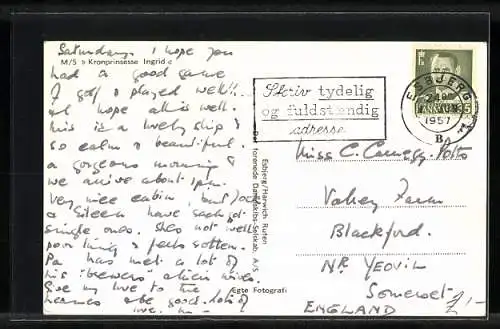 Saturday. I hope you
M/S » Kronprinsesse Ingrid «
had a good game
of golf & played well!!
I hope all is well.
This is a lovely ship &
so calm & beautiful.
a gorgeous morning &
we arrive about 1pm.
very nice cabin, but Jock
& Eileen have such
single ones. She's not well
poor thing & feels rotten.
Pa has met a lot of
his "brewers" & their wives.
Give my love to the
& be good. Lots of
love.
Egte Fotografi
Esbjerg/Harwich Ruten
Det forenede Dampskibs-Selskab, A/S
Skriv tydelig
og fuldstændig
adresse
ESBJERG
1957
DANMARK
35
Miss C.
Farm
Blackford.
NR. YEOVIL
Somerset
ENGLAND